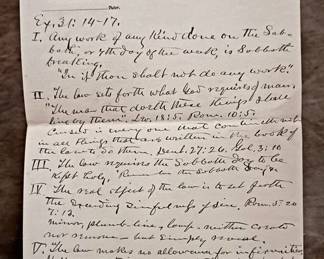 Ex. 31: 14-17.
I. Any work of any kind done on the Sab-
bath, or 7th day of the week, is Sabbath
breaking.
"In it thou shalt not do any work".
II. The law sets forth what God requires of man.
"The man that doeth these things shall
live by them". Lev. 18:5. Rom. 10:5.
Cursed is every one that continueth not
in all things that are written in the book of
the law to do them, Deut. 27:26. Gal. 3:10
III. The law requires the Sabbath day to be
kept holy. Remember the Sabbath day &
IV. The real object of the law is to set forth
the exceeding sinfulness of sin. Rom. 5:20
7:13.
mirror, plumb-line, neither create
nor remove - but simply reveal.
V. The law makes no allowance for infirmities